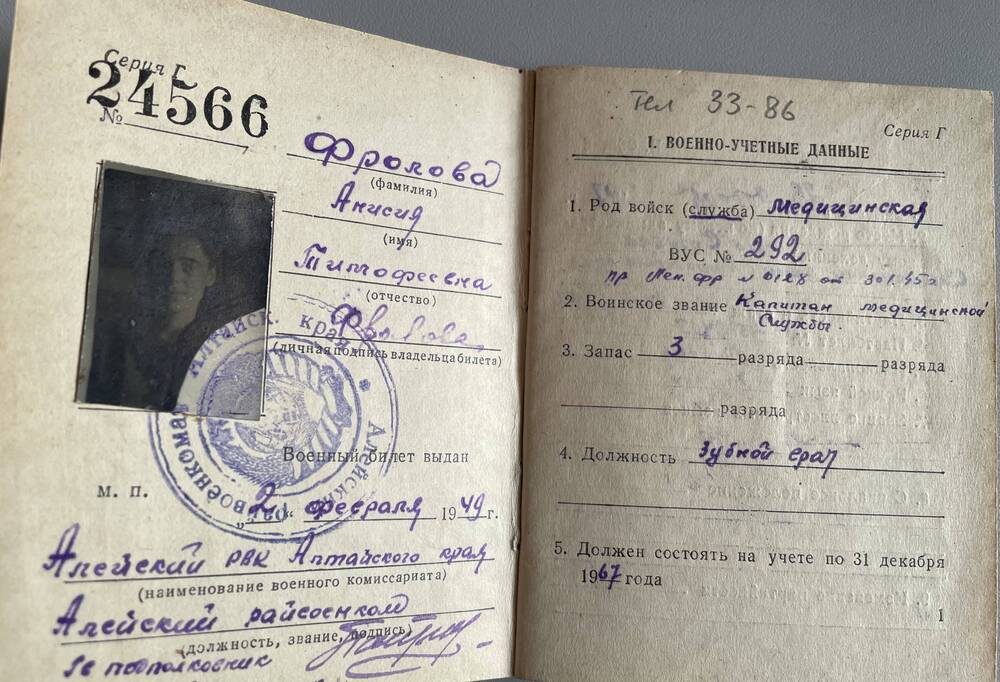 Серия Г
№ 24566
Фролова
(фамилия)
Анисия
(имя)
Тимофеевна
(отчество)
Фролова
(личная подпись владельца билета)
Алтайск. края
Алейский райвоенкомат
Военный билет выдан
М. П.
„2“ февраля 1949 г.
Алейский РВК Алтайского края
(наименование военного комиссариата)
Алейский райвоенком
(должность, звание, подпись)
подполковник
Тел 33-86
Серия Г
I. ВОЕННО-УЧЕТНЫЕ ДАННЫЕ
1. Род войск (служба) медицинская
ВУС № 292
пр Лен. фр № 0128 от 30 1.45г
2. Воинское звание Капитан медицинской
Службы.
3. Запас 3 разряда разряда
разряда
4. Должность Зубной врач
5. Должен состоять на учете по 31 декабря
1967 года
1